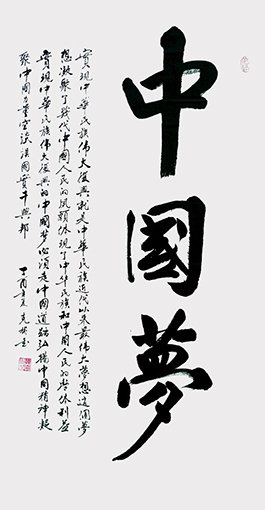 中國夢
實現中華民族偉大復興就是中華民族近代以來最偉大夢想這個夢
想凝聚了幾代中國人民的夙願体現了中华民族和中國人民的整体利益
實現中華民族偉大復興的中國梦必須走中國道路弘揚中國精神凝
聚中國力量空談误國實干興邦
丁酉